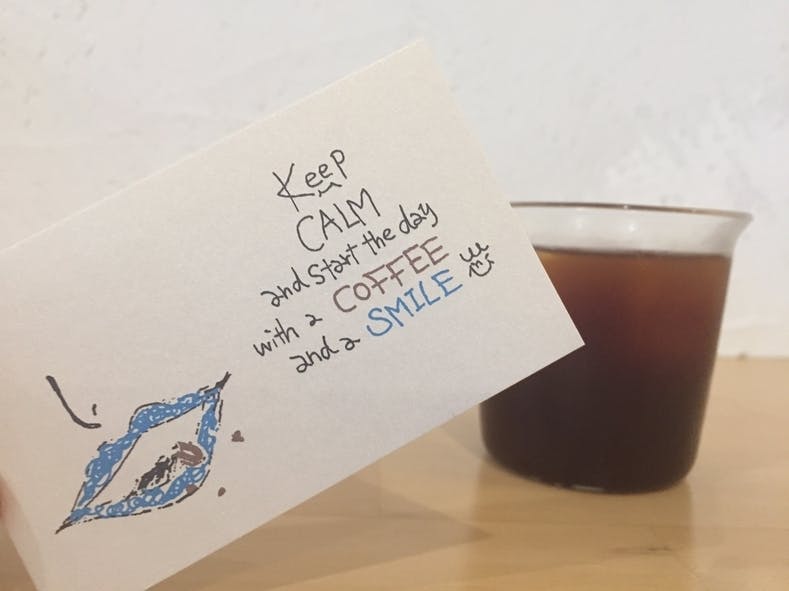 Keep
CALM
and start the day
with a COFFEE
and a SMILE